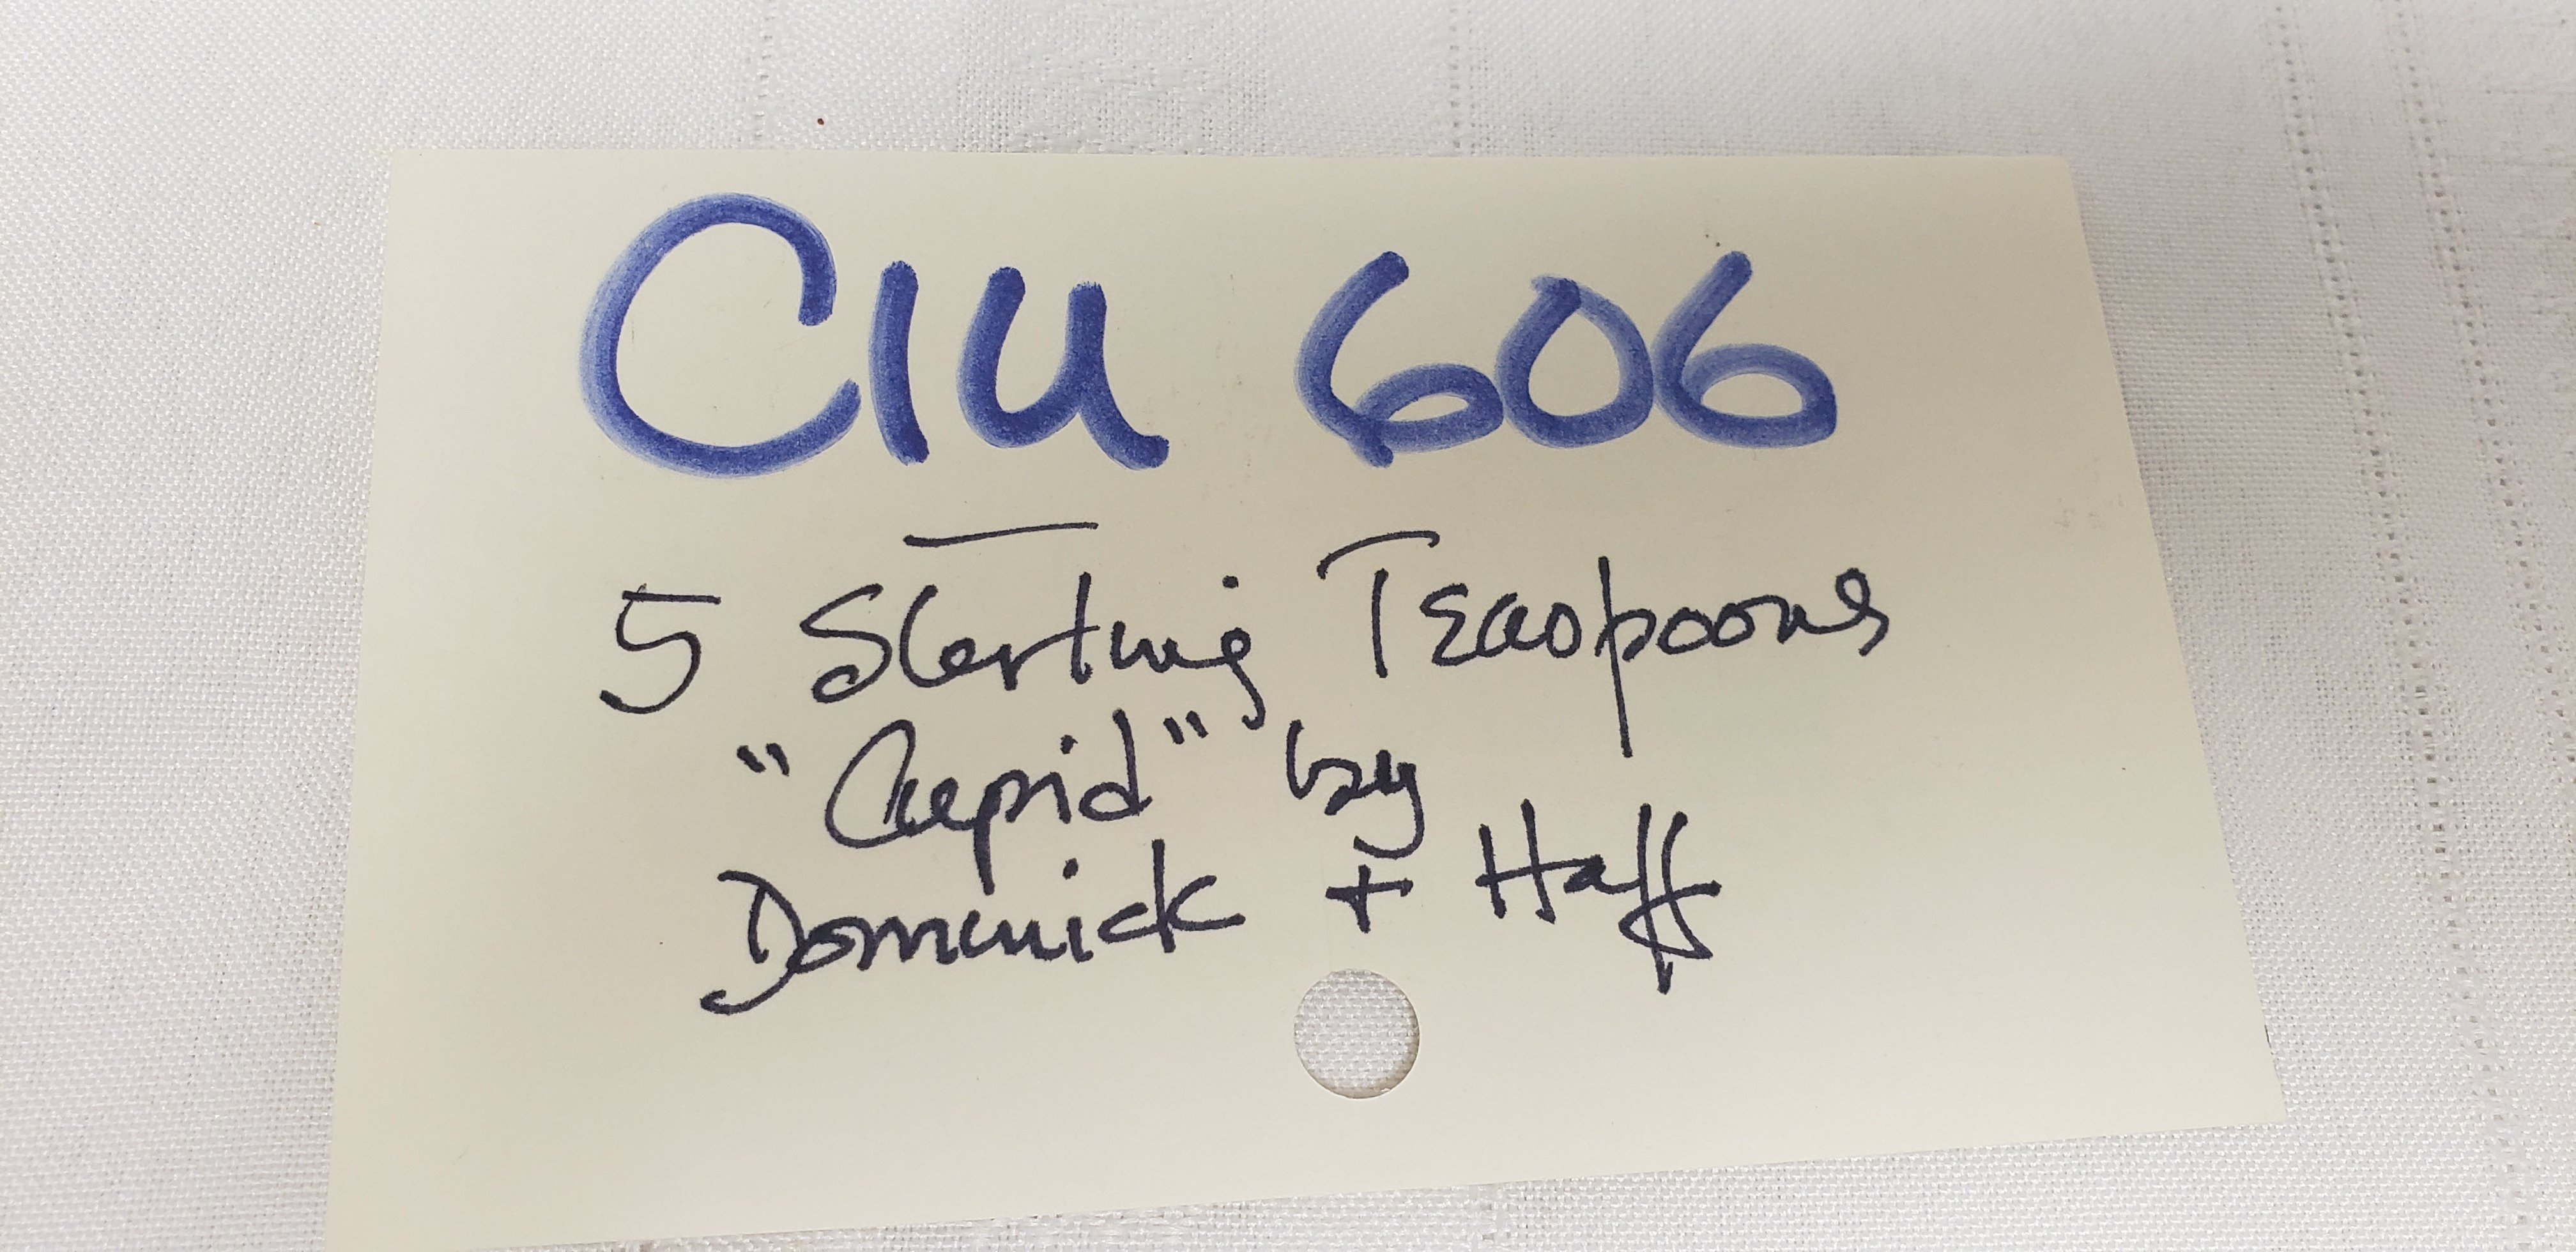 C1U 606
5 Sterling Teaspoons
"Cupid" by
Dominick + Haff